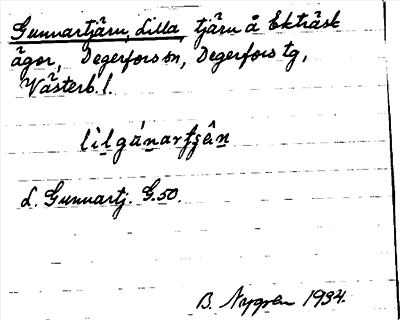 Gunnartjärn, Lilla, tjärn å Ekträsk
ägor, Degerfors sn, Degerfors tg,
Västerb. l.
lìlgánartʂɛ̂n
L. Gunnartj. G.50.
B. Nygren 1934.